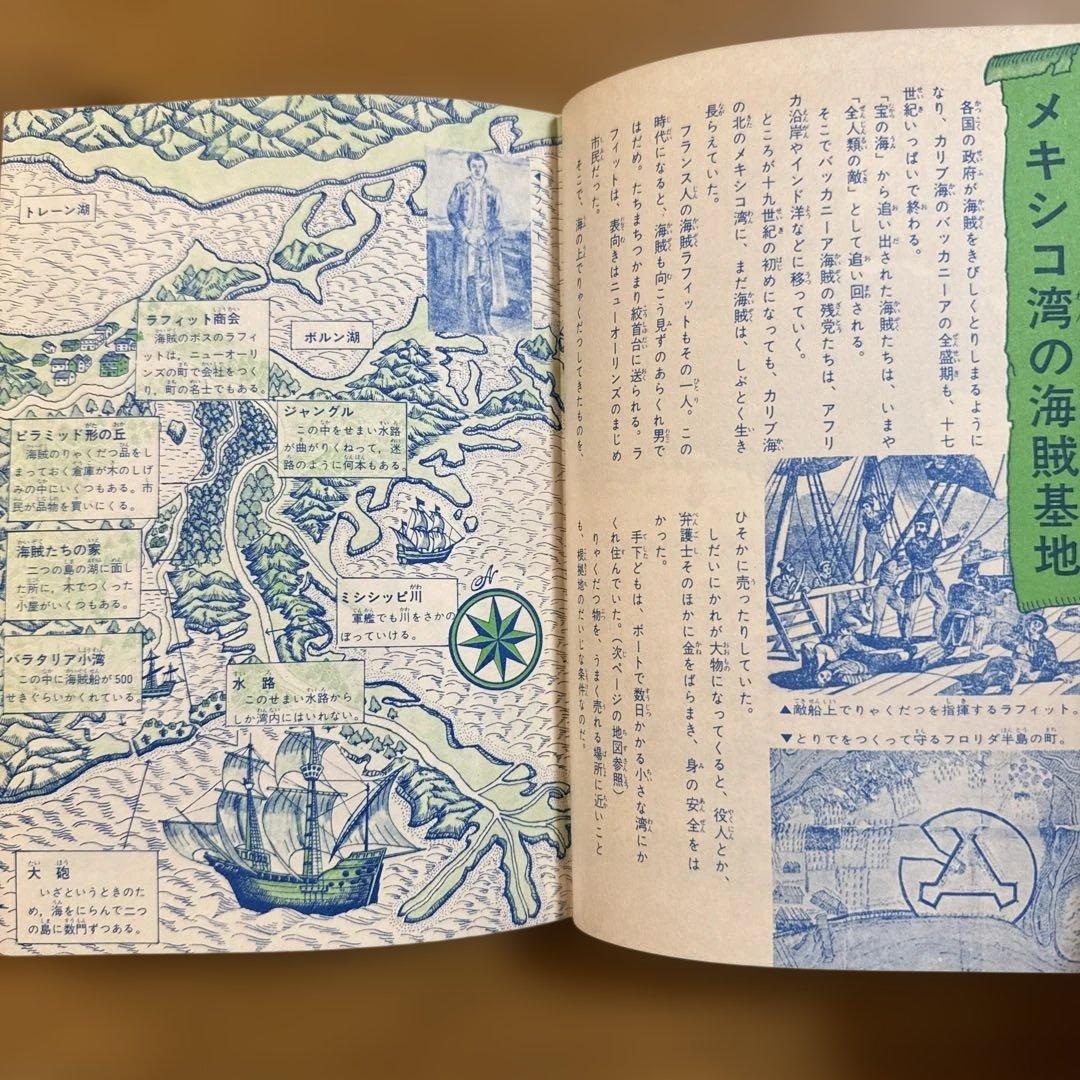 メキシコ湾の海賊基地
各国の政府が海賊をきびしくとりしまるように
なり、カリブ海のバッカニーアの全盛期も、十七
世紀いっぱいで終わる。
「宝の海」から追い出された海賊たちは、いまや
「全人類の敵」として追い回される。
そこでバッカニーア海賊の残党たちは、アフリ
カ沿岸やインド洋などに移っていく。
ところが十九世紀の初めになっても、カリブ海
の北のメキシコ湾に、まだ海賊は、しぶとく生き
長らえていた。
フランス人の海賊ラフィットもその一人。この
時代になると、海賊も向こう見ずのあらくれ男で
はだめ。たちまちつかまり絞首台に送られる。ラ
フィットは、表向きはニューオーリンズのまじめ
市民だった。
そこで、海の上でりゃくだつしてきたものを、
ひそかに売ったりしていた。
しだいにかれが大物になってくると、役人とか、
弁護士そのほかに金をばらまき、身の安全をは
かった。
手下どもは、ボートで数日かかる小さな湾にか
くれ住んでいた。(次ページの地図参照)
りゃくだつ物を、うまく売れる場所に近いこと
も、根拠地のだいじな条件なのだ。
▲敵船上でりゃくだつを指揮するラフィット。
▼とりでをつくって守るフロリダ半島の町。
トレーン湖
ラフィット商会
海賊のボスのラフ
ィットは、ニューオーリ
ンズの町で会社をつく
り、町の名士でもある。
ボルン湖
ピラミッド形の丘
海賊のりゃくだつ品をし
まっておく倉庫が木のしげ
みの中にいくつもある。市
民が品物を買いにくる。
ジャングル
この中をせまい水路
が曲がりくねって、迷
路のように何本もある。
海賊たちの家
二つの島の湖に面し
た所に、木でつくった
小屋がいくつもある。
ミシシッピ川
軍艦でも川をさかの
ぼっていける。
バラタリア小湾
この中に海賊船が500
せきぐらいかくれている
水路
このせまい水路から
しか湾内にはいれない。
大砲
いざというときのた
め，海をにらんで二つ
の島に数門ずつある。